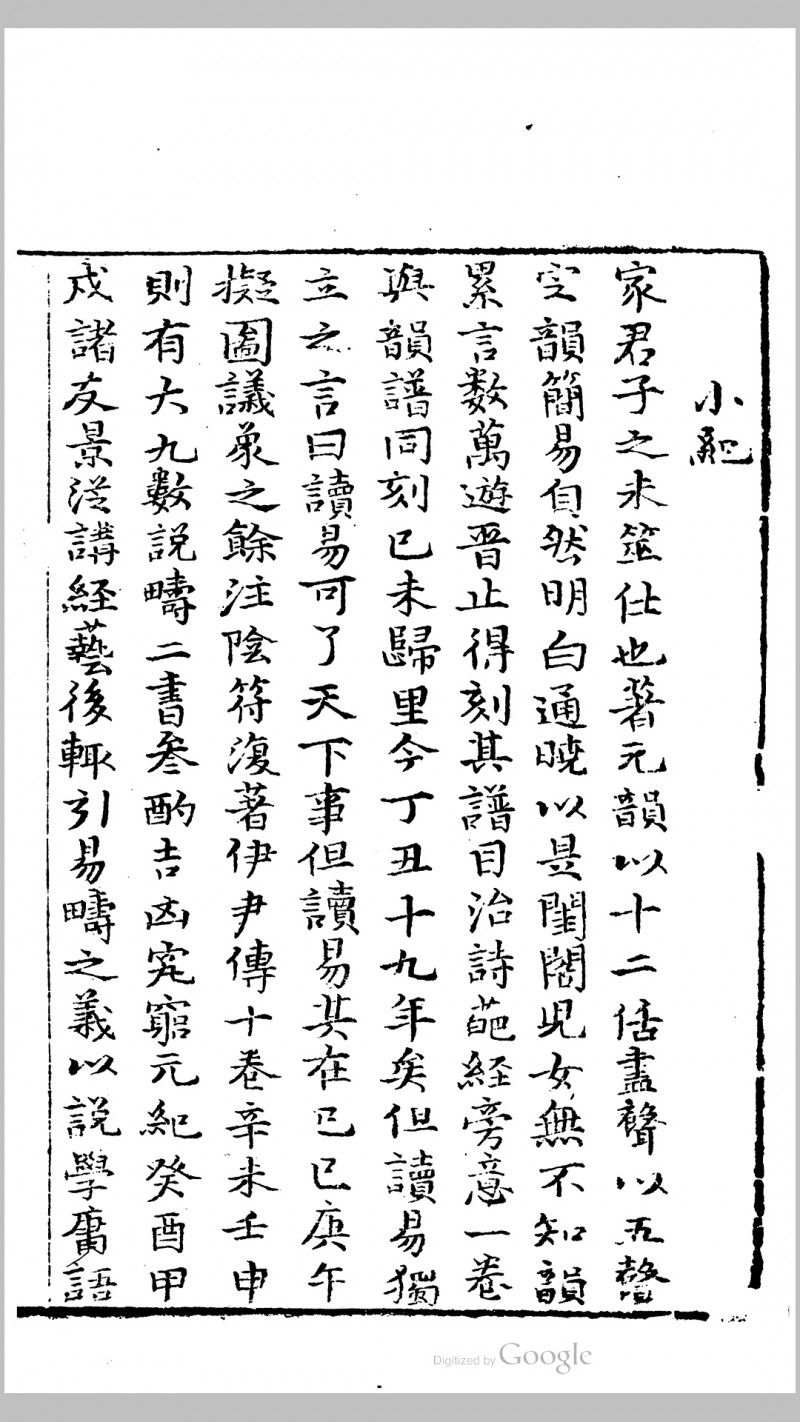 小紀
家君子之未筮仕也著元韻以十二佸盡聲以五聲
定韻簡易自然明白通曉以是閨閤児女無不知韻
累言数萬遊晋止得刻其譜目治詩葩經旁意一卷
與韻譜同刻已未歸里今丁丑十九年矣但讀易獨
立之言曰讀易可了天下事但讀易其在己巳庚午
擬圖議象之餘注陰符復著伊尹傳十卷辛未壬申
則有大九數説疇二書叅酌吉凶究窮元紀癸酉甲
戌諸友景從講經藝後輙引易疇之義以説學庸語
Digitized by Google